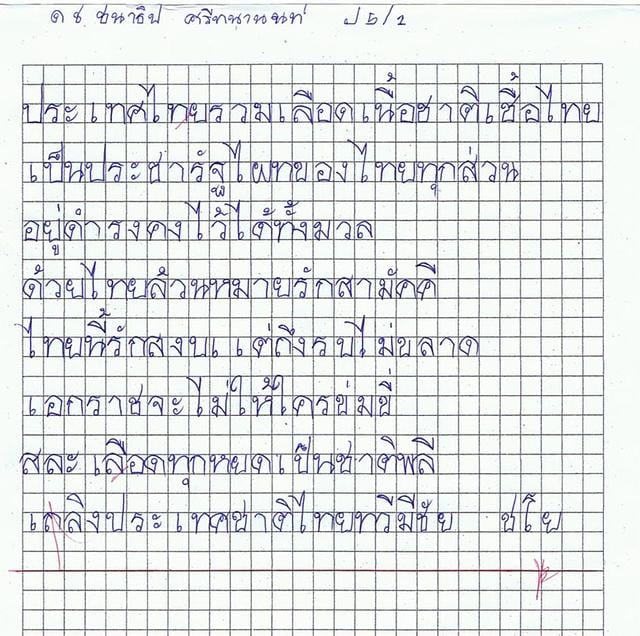 ด.ช. ชนาธิป ศรีทนานนท์ ป5/2
ประเทศไทยรวมเลือดเนื้อชาติเชื้อไทย
เป็นประชารัฐไผทของไทยทุกส่วน
อยู่ดำรงคงไว้ได้ทั้งมวล
ด้วยไทยล้วนหมายรักสามัคคี
ไทยนี้รักสงบแต่ถึงรบไม่ขลาด
เอกราชจะไม่ให้ใครข่มขี่
สละเลือดทุกหยดเป็นชาติพลี
เถลิงประเทศชาติไทยทวีมีชัย ชโย